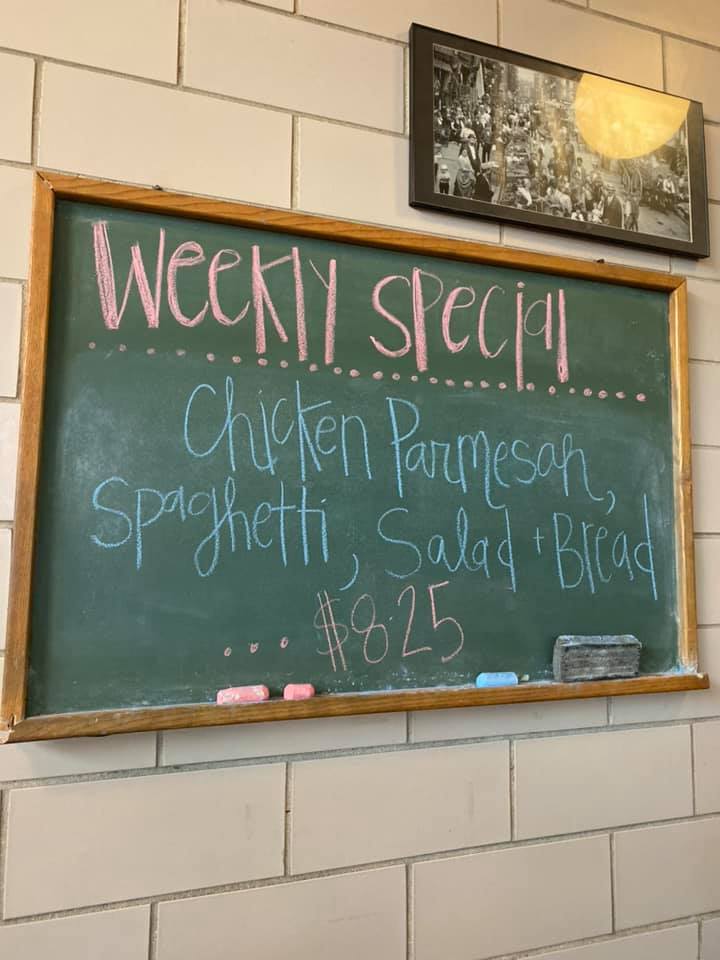 Weekly Special
Chicken Parmesan,
Spaghetti, Salad + Bread
... $8.25